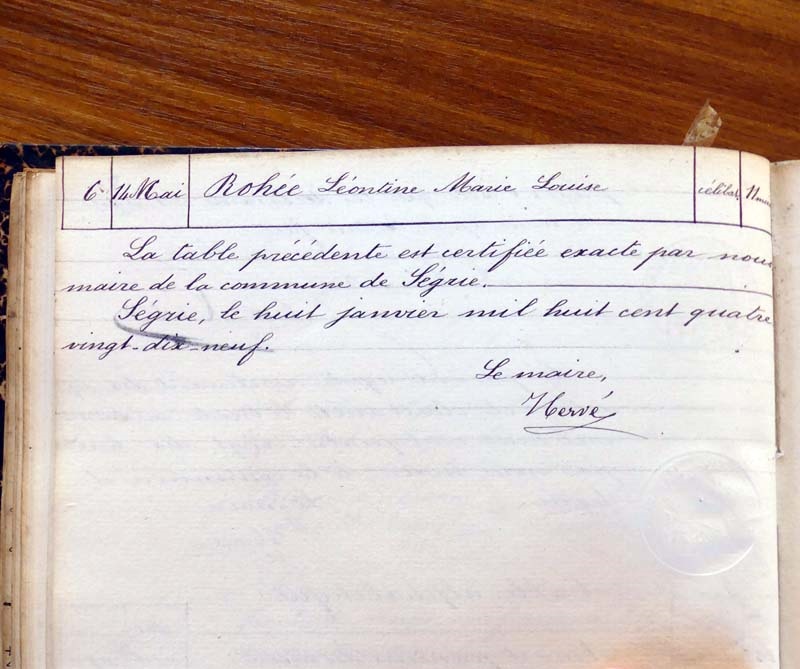 6 14 Mai Rohée Léontine Marie Louise célibat. 11 mois
La table précédente est certifiée exacte par nous
maire de la commune de Ségrie.
Ségrie, le huit janvier mil huit cent quatre
vingt-dix-neuf.
Le maire,
Hervé